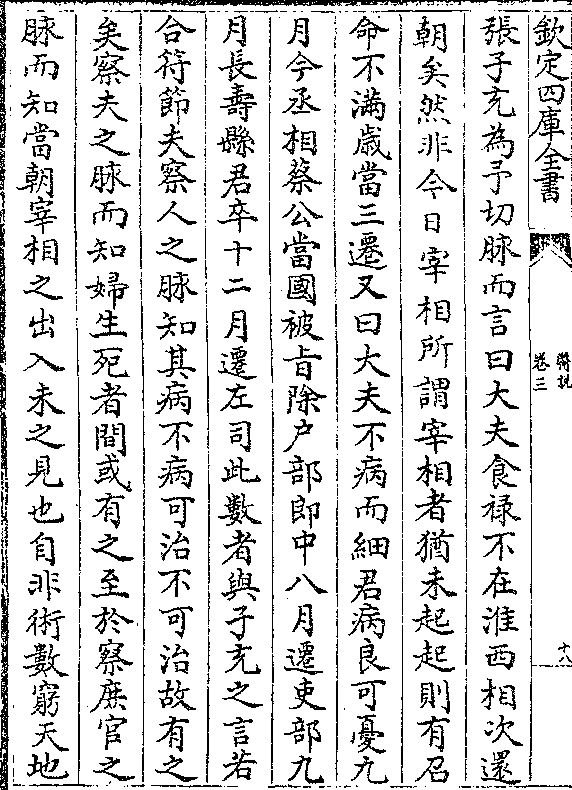 欽定四庫全書
醫說
卷三
十八
張子充為予切脉而言曰大夫食禄不在淮西相次還
朝矣然非今日宰相所謂宰相者猶未起起則有召
命不滿歲當三遷又曰大夫不病而細君病良可憂九
月今丞相蔡公當國被旨除户部郎中八月遷吏部九
月長壽縣君卒十二月遷左司此數者與子充之言若
合符節夫察人之脉知其病不病可治不可治故有之
矣察夫之脉而知婦生死者間或有之至於察庶官之
脉而知當朝宰相之出入未之見也自非術數窮天地